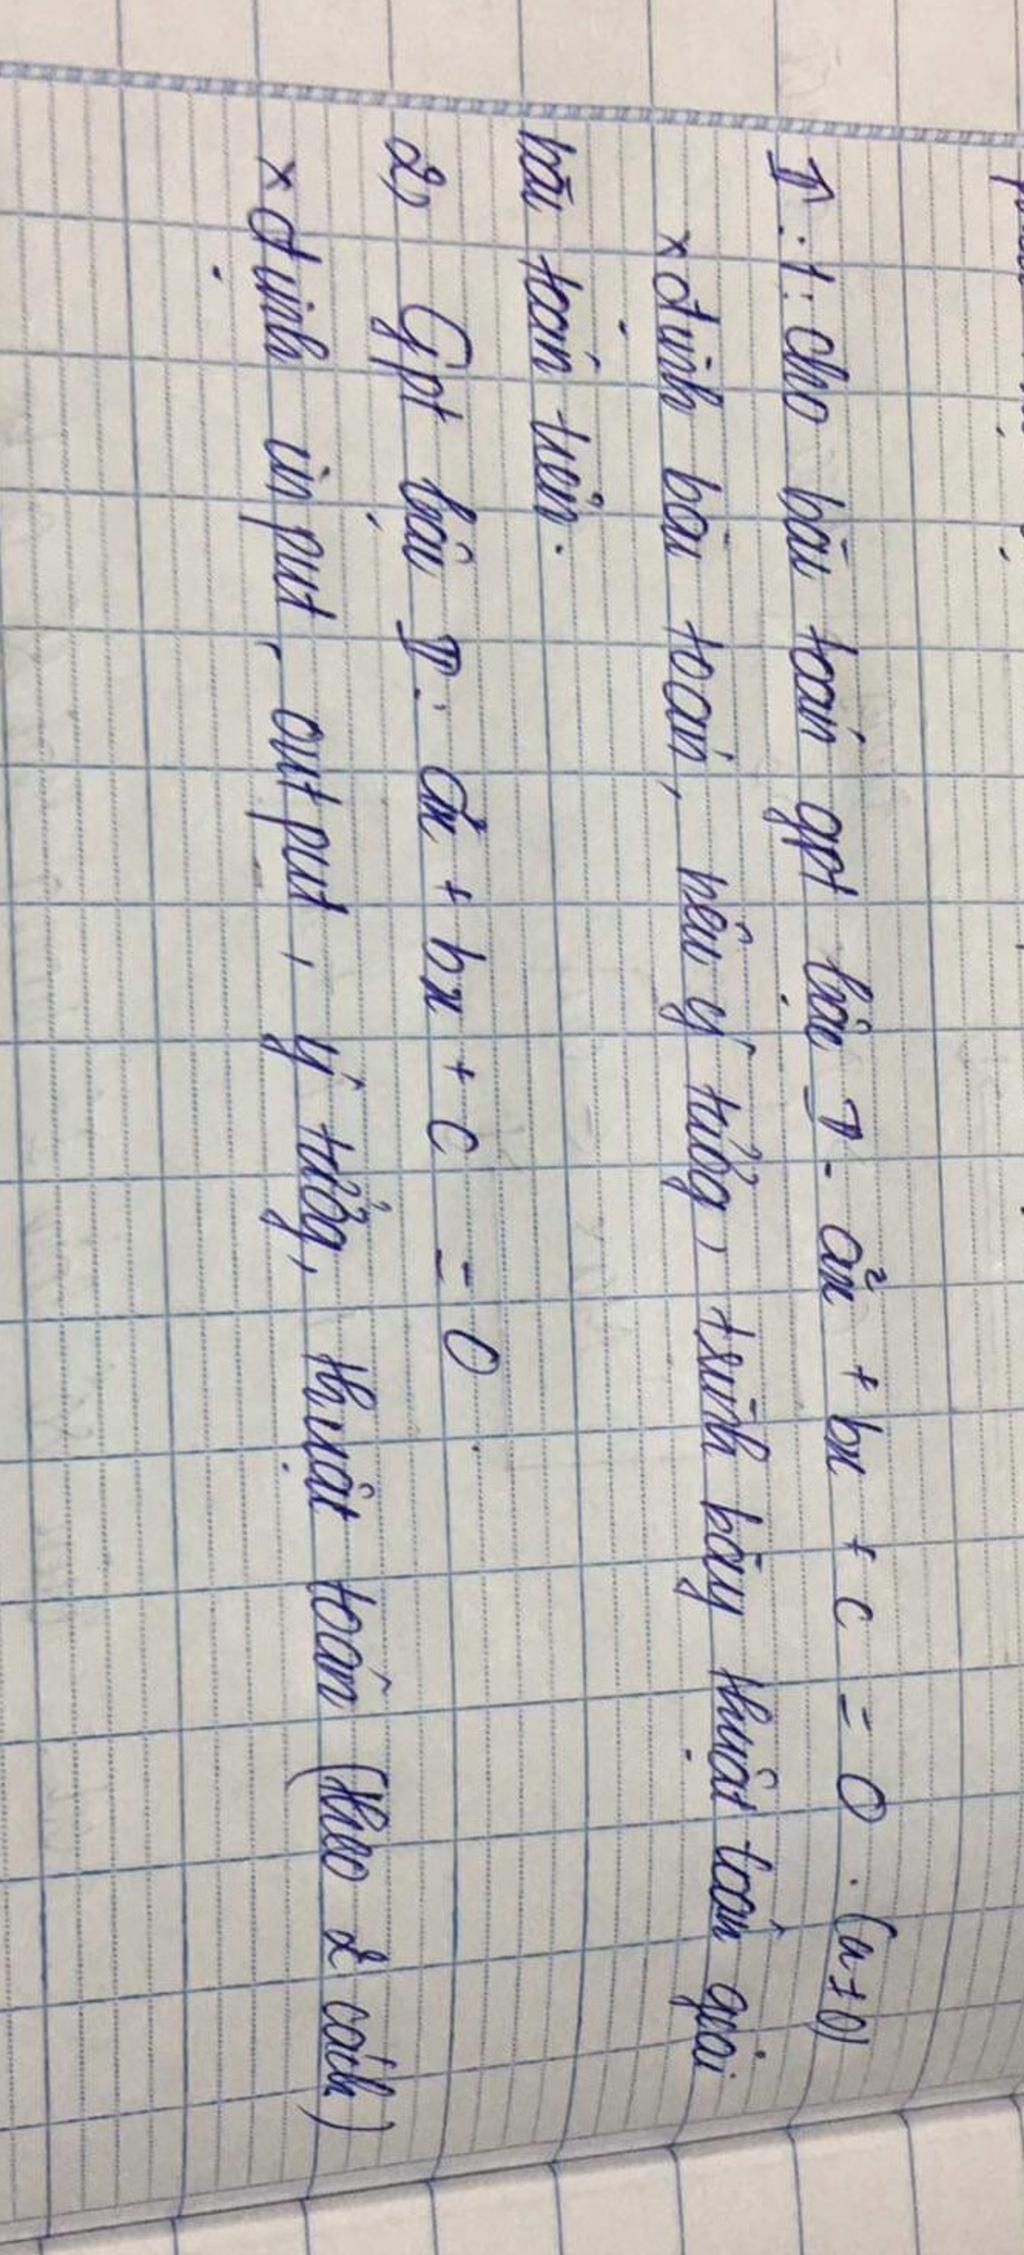 II: 1: cho bài toán gpt bậc II: ax² + bx + c = 0. (a ≠ 0)
xđịnh bài toán, nêu ý tưởng, trình bày thuật toán giải
bài toán trên.
2, Gpt bậc II: ax² + bx + c = 0
xđịnh input, output, ý tưởng, thuật toán (theo 2 cách)